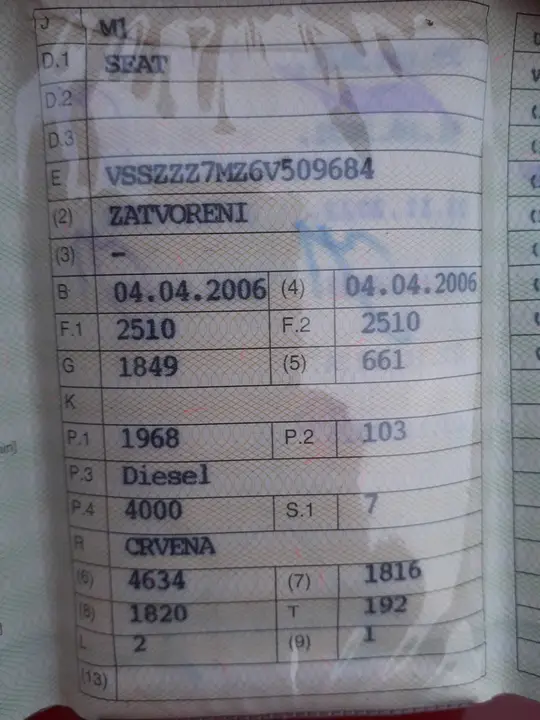 J M1
D.1 SEAT
D.2
D.3
E VSSZZZ7MZ6V509684
(2) ZATVORENI
(3) -
B 04.04.2006 (4) 04.04.2006
F.1 2510 F.2 2510
G 1849 (5) 661
K
P.1 1968 P.2 103
P.3 Diesel
P.4 4000 S.1 7
R CRVENA
(6) 4634 (7) 1816
(8) 1820 T 192
L 2 (9) 1
(13)